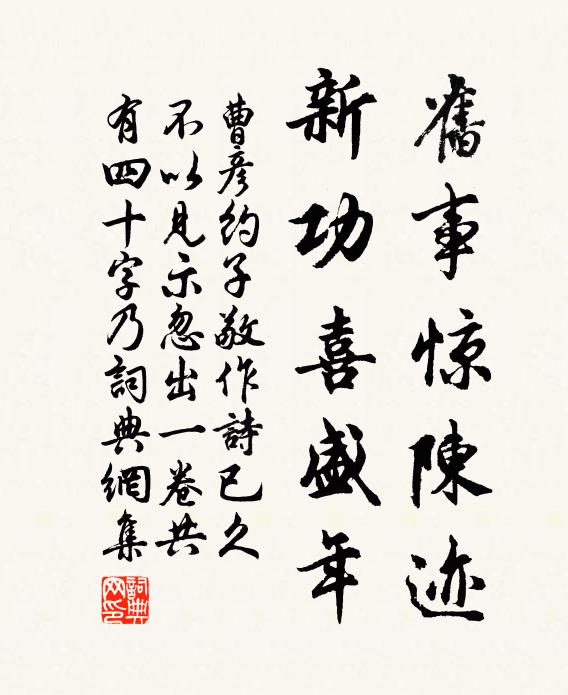 舊事惊陳迹
新功喜盛年
曹彦約子敬作詩已久
不以見示忽出一卷共
有四十字乃詞典網集
詞典
网印